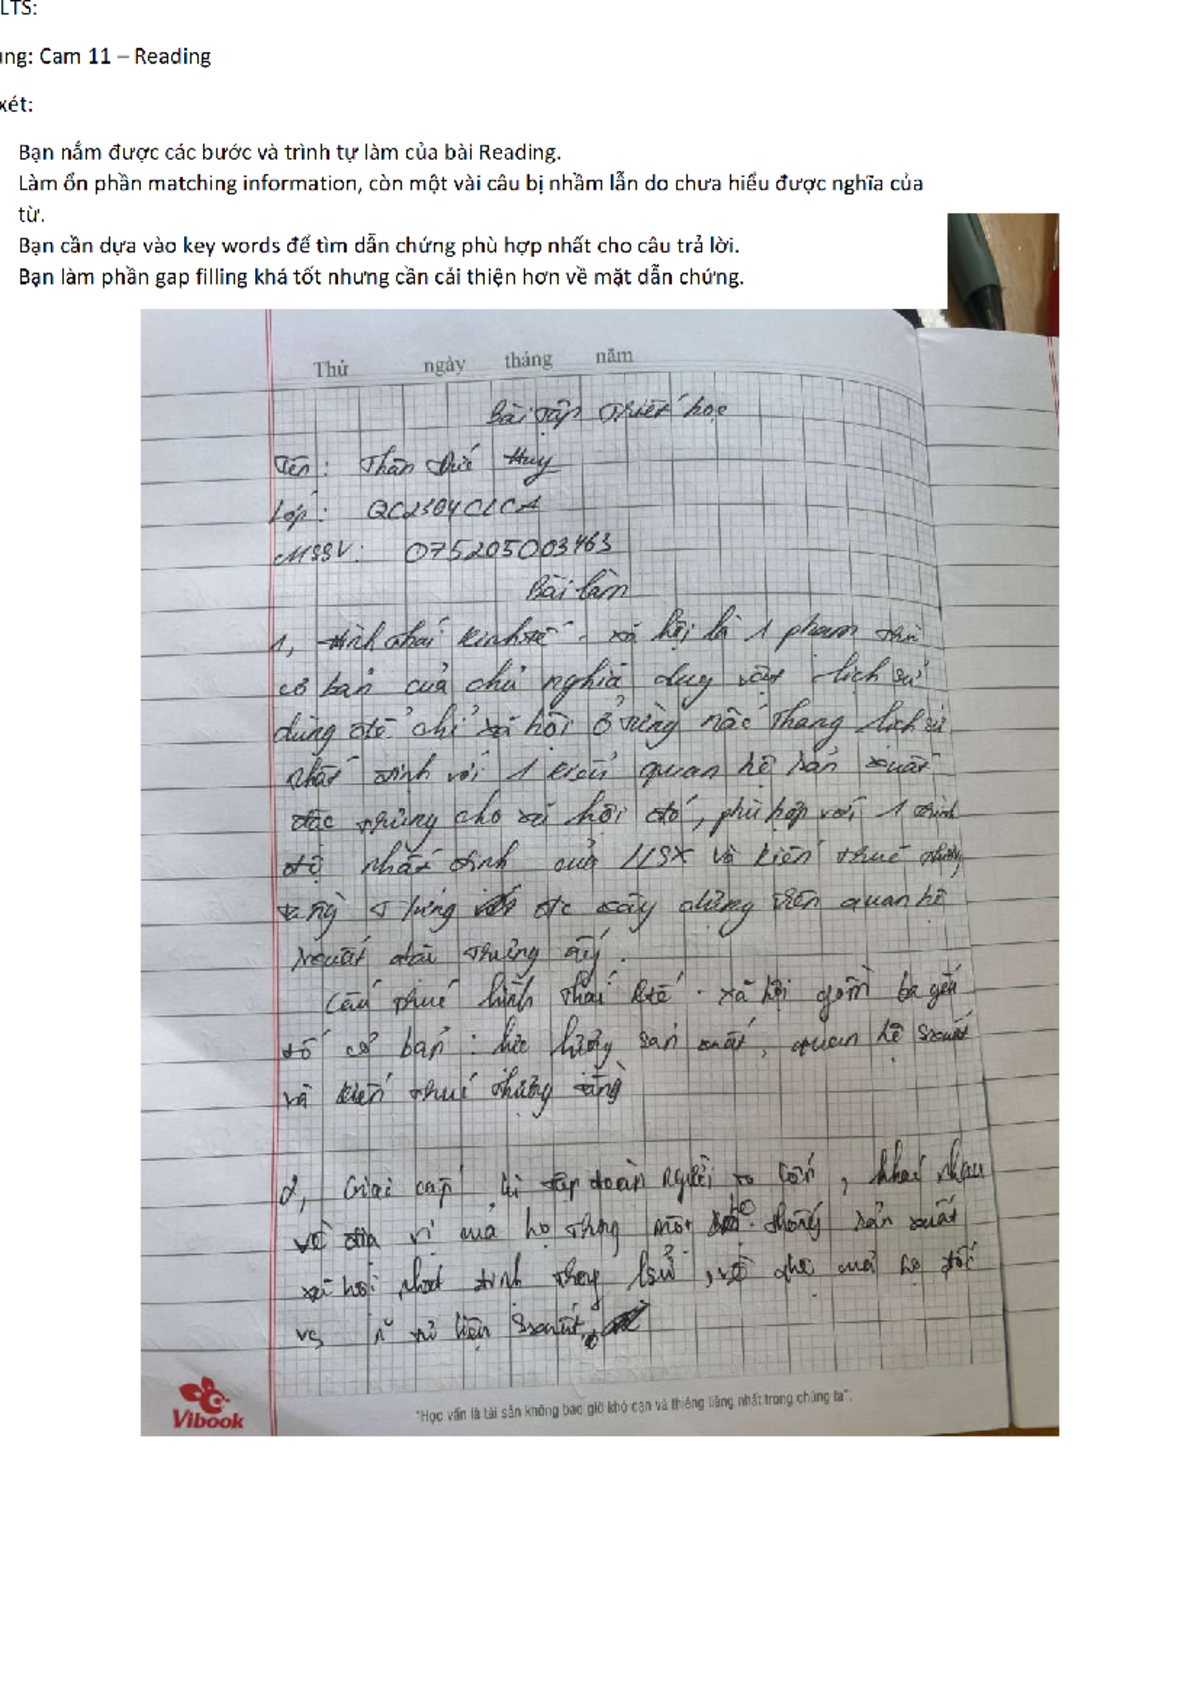 LTS:
ung: Cam 11 – Reading
xét:
Bạn nắm được các bước và trình tự làm của bài Reading.
Làm ổn phần matching information, còn một vài câu bị nhầm lẫn do chưa hiểu được nghĩa của
từ.
Bạn cần dựa vào key words để tìm dẫn chứng phù hợp nhất cho câu trả lời.
Bạn làm phần gap filling khá tốt nhưng cần cải thiện hơn về mặt dẫn chứng.
Thứ ngày tháng năm
Bài tập triết học
Tên: Thân Đức Huy
Lớp: QC2304CLCA
MSSV: 075205003463
Bài làm
1, Hình thái kinh tế - xã hội là 1 phạm trù
cơ bản của chủ nghĩa duy vật lịch sử
dùng để chỉ xã hội ở từng nấc thang lịch sử
nhất định với 1 kiểu quan hệ sản xuất
đặc trưng cho xã hội đó, phù hợp với 1 trình
độ nhất định của LLSX và kiến thức thượng
tầng tương đc xây dựng trên quan hệ
sxuất đặc trưng ấy.
Cấu trúc hình thái ktế - xã hội gồm ba yếu
tố cơ bản: lực lượng sản xuất, quan hệ sxuất
và kiến trúc thượng tầng
2, Giai cấp là tập đoàn người to lớn, khác nhau
về địa vị của họ trong một hệ thống sản xuất
xã hội nhất định theo lsử, về qhệ của họ đối
vs tư liệu sxuất.
Vibook
"Học vấn là tài sản không bao giờ khô cạn và thiêng liêng nhất trong chúng ta".